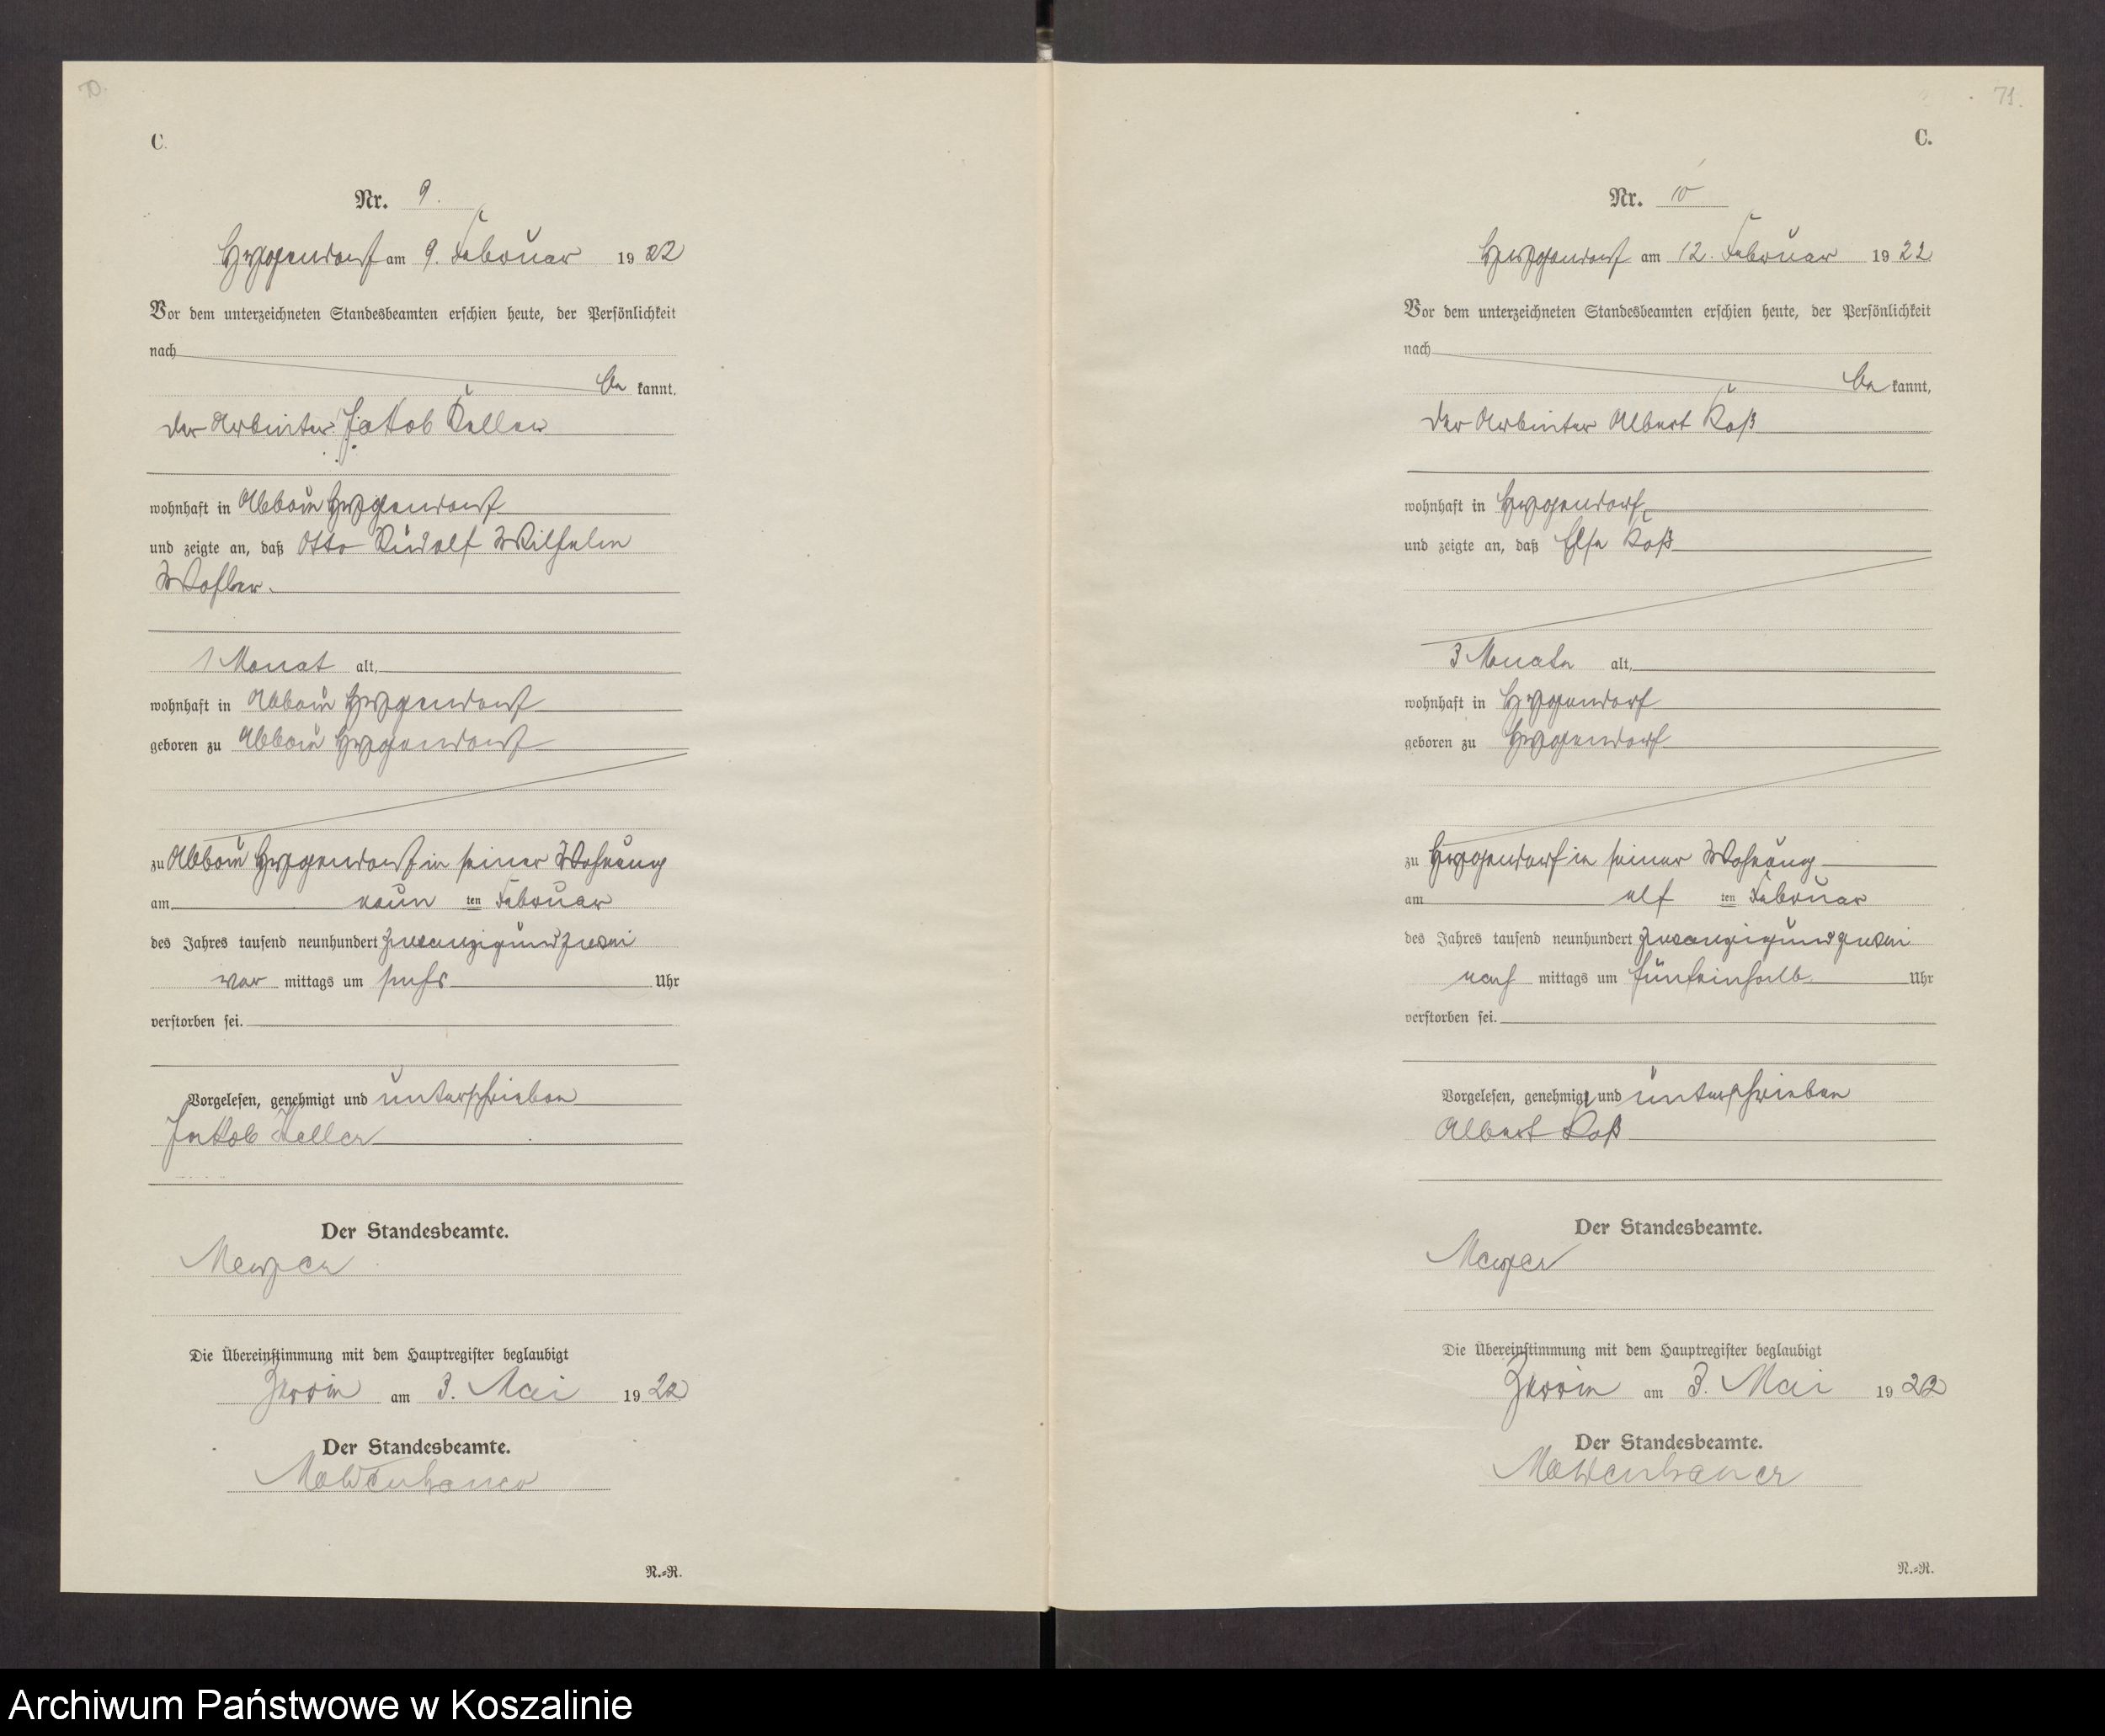 70.
C.
Nr. 9.
am 9. Februar 1922
Vor dem unterzeichneten Standesbeamten erschien heute, der Persönlichkeit
nach
be kannt,
der Arbeiter Jakob Keller
wohnhaft in Abbau
und zeigte an, daß Otto Rudolf Wilhelm
1 Monat alt,
wohnhaft in Abbau
geboren zu Abbau
zu Abbau in seiner Wohnung
am neun ten Februar
des Jahres tausend neunhundert zwanzigundzwei
vor mittags um sechs Uhr
verstorben sei.
Vorgelesen, genehmigt und unterschrieben
Jakob Keller
Der Standesbeamte.
Meyer
Die Übereinstimmung mit dem Hauptregister beglaubigt
am 3. Mai 1922
Der Standesbeamte.
Moldenhauer
N.-R.
71.
C.
Nr. 10
am 12. Februar 1922
Vor dem unterzeichneten Standesbeamten erschien heute, der Persönlichkeit
nach
be kannt,
der Arbeiter Albert
wohnhaft in
und zeigte an, daß Else
3 Monate alt,
wohnhaft in
geboren zu
zu in seiner Wohnung
am elf ten Februar
des Jahres tausend neunhundert zwanzigundzwei
nach mittags um fünfeinhalb Uhr
verstorben sei.
Vorgelesen, genehmigt und unterschrieben
Albert
Der Standesbeamte.
Meyer
Die Übereinstimmung mit dem Hauptregister beglaubigt
am 3. Mai 1922
Der Standesbeamte.
Moldenhauer
N.-R.
Archiwum Państwowe w Koszalinie